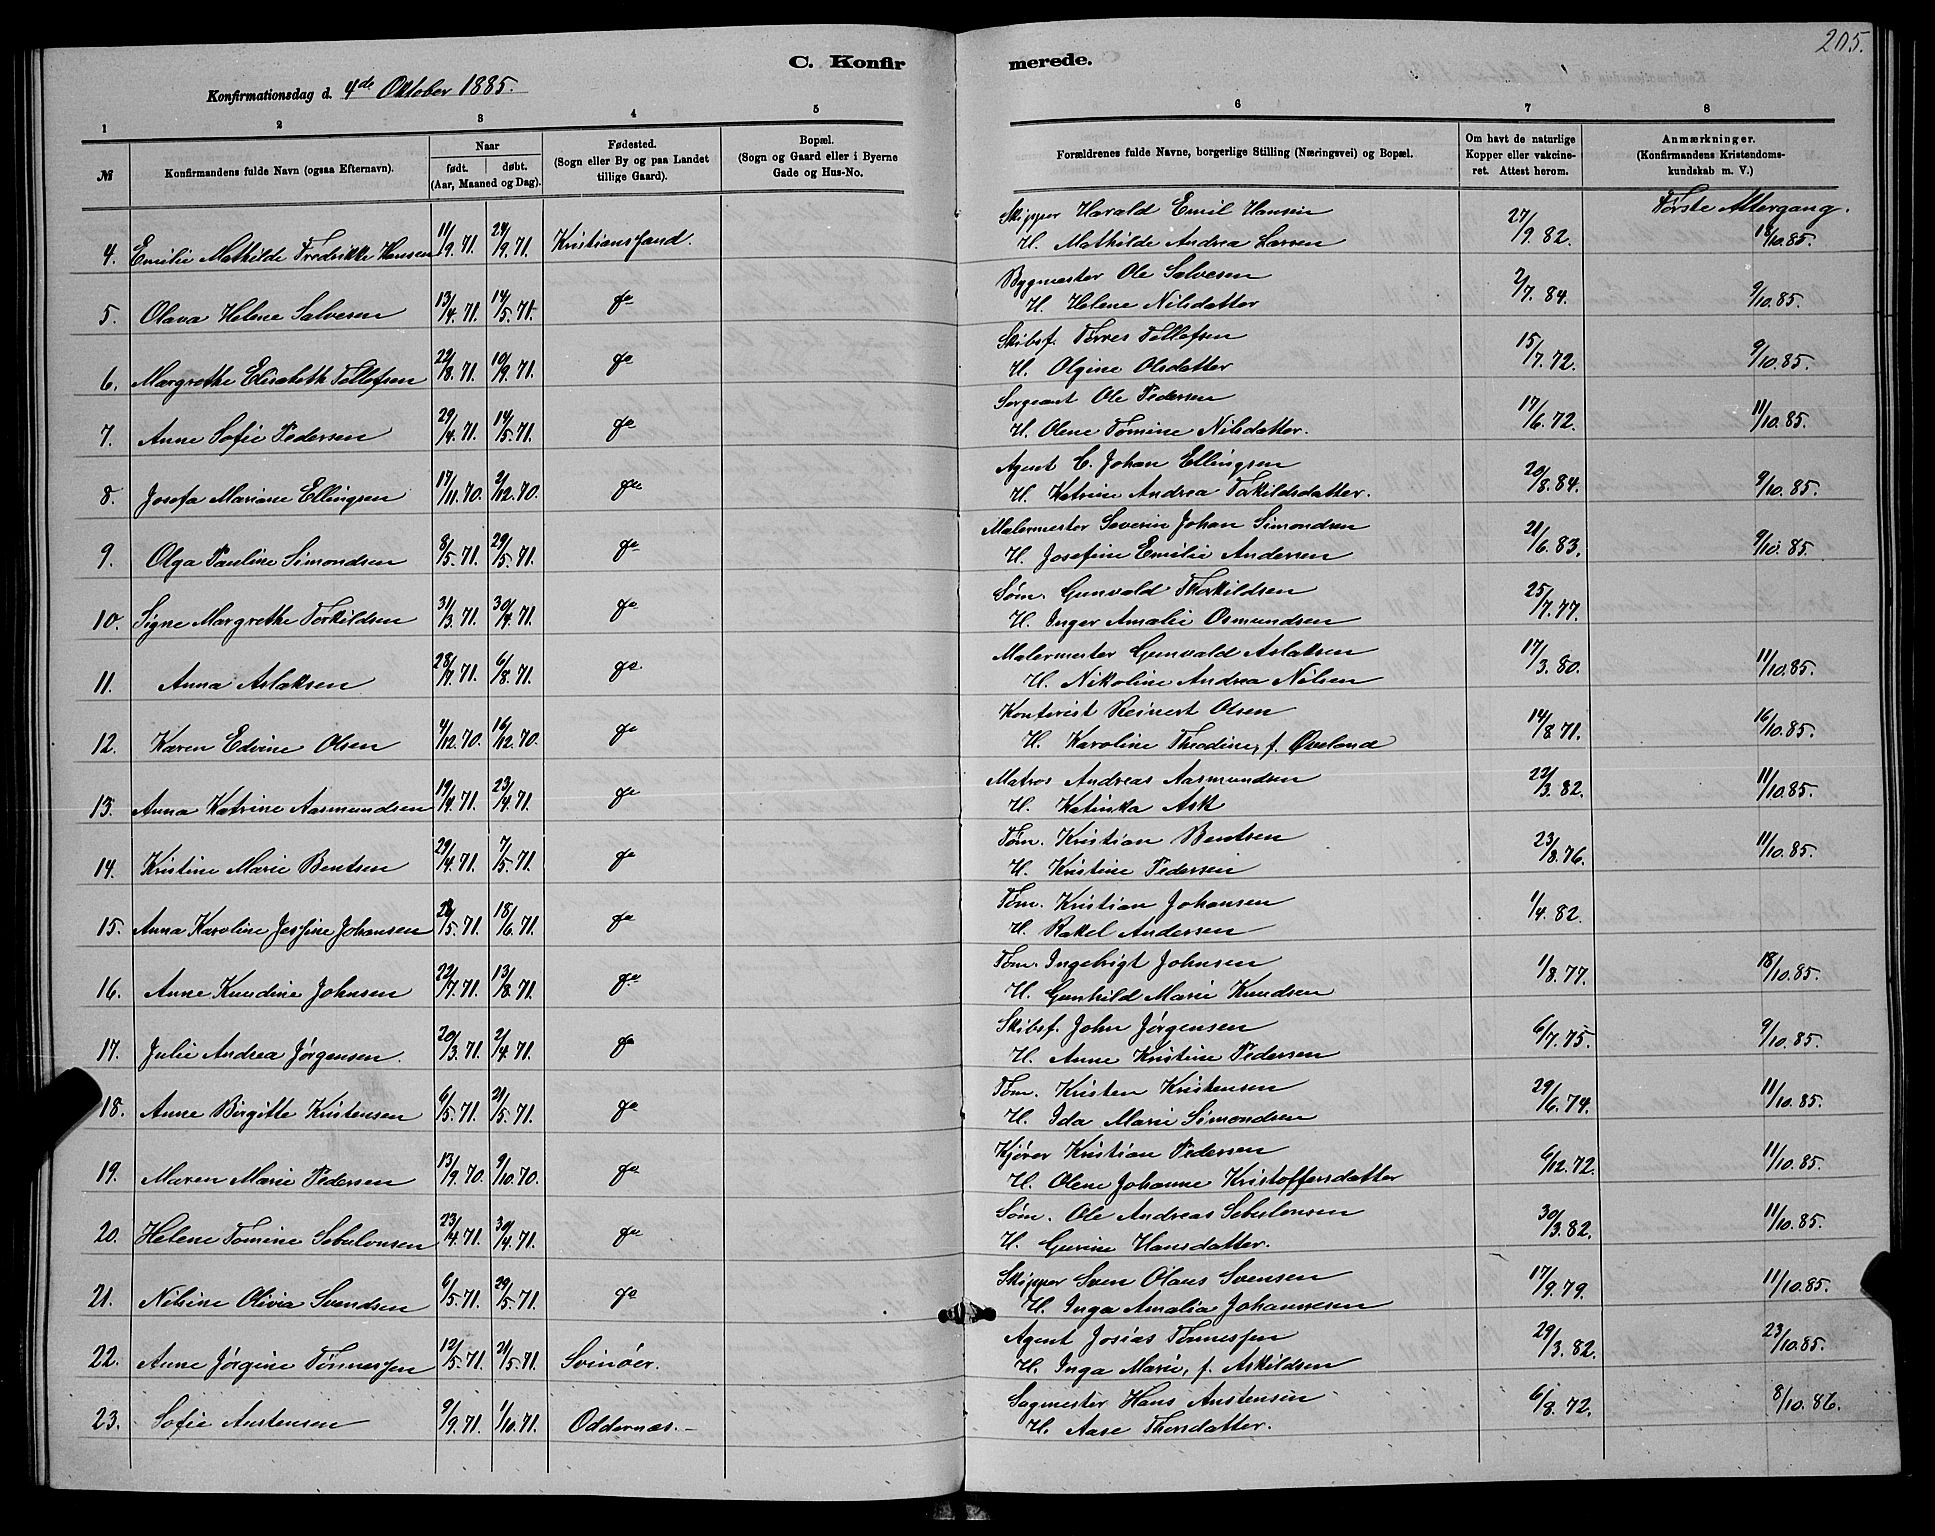 205.
C. Konfirmerede.
Konfirmationsdag d. 4de Oktober 1885.
1 2 3 4 5 6 7 8
№ Konfirmandens fulde Navn (ogsaa Efternavn). Naar født. døbt. (Aar, Maaned og Dag). Fødested. (Sogn eller By og paa Landet tillige Gaard). Bopæl. (Sogn og Gaard eller i Byerne Gade og Hus-No. Forældrenes fulde Navne, borgerlige Stilling (Næringsvei) og Bopæl. Om havt de naturlige Kopper eller vakcineret. Attest herom. Anmærkninger. (Konfirmandens Kristendomskundskab m. V.)
Første Altergang.
4. Emilie Mathilde Fredrikke Hansen 11/9.71. 24/9.71. Kristianssand. Skipper Harald Emil Hansen 27/9.82. 18/10.85.
H. Mathilde Andrea Larsen
5. Olava Helene Salvesen 13/4.71. 14/5.71. do Bygmester Ole Salvesen 2/7.84. 9/10.85.
H. Helene Nilsdatter
6. Margrethe Elisabeth Tellefsen 22/8.71. 10/9.71. do Skibsf. Terres Tellefsen 15/7.72. 9/10.85.
H. Olgine Olsdatter
7. Anne Sofie Pedersen 29/4.71. 14/5.71. do Sergeant Ole Pedersen 17/6.72. 11/10.85.
H. Olene Tomine Nilsdatter.
8. Josefa Mariane Ellingsen 17/11.70. 2/12.70. do Agent C. Johan Ellingsen 20/8.84. 9/10.85.
H. Katrine Andrea Torkildsdatter.
9. Olga Pauline Simondsen 8/5.71. 29/5.71. do Malermester Severin Johan Simondsen 21/6.83. 9/10.85.
H. Josefine Emilie Andersen
10. Signe Margrethe Torkildsen 31/3.71. 30/4.71. do Søm. Gunvald Thorkildsen 25/7.77.
H. Inger Amalie Osmundsen
11. Anna Aslaksen 28/7.71. 6/8.71. do Malermester Gunvald Aslaksen 17/3.80. 11/10.85.
H. Nikoline Andrea Nilsen
12. Karen Edvine Olsen 4/12.70. 16/12.70. do Kontorist Reinert Olsen 14/8.71. 16/10.85.
H. Karoline Theodine, f. Øveland
13. Anna Katrine Aasmundsen 19/4.71. 23/4.71. do Matros Andreas Aasmundsen 22/3.82. 11/10.85.
H. Katinka Ask
14. Kristine Marie Bentsen 29/4.71. 7/5.71. do Tøm. Kristian Bentsen 23/8.76. 11/10.85.
H. Kristine Pedersen
15. Anna Karoline Jossine Johansen 28/5.71. 18/6.71. do Tøm. Kristian Johansen 1/4.82.
H. Rakel Andersen
16. Anne Knudine Johnsen 22/7.71. 13/8.71. do Tøm. Ingebrigt Johnsen 1/8.77. 18/10.85.
H. Gunhild Marie Knudsen
17. Julie Andrea Jørgensen. 20/3.71. 2/4.71. do Skibsf. John Jørgensen 6/7.75. 9/10.85.
H. Anne Kristine Pedersen
18. Anne Birgitte Kristensen 6/5.71. 21/5.71. do Tøm. Kristen Kristensen 29/6.74. 11/10.85.
H. Ida Marie Simondsen
19. Maren Marie Pedersen 13/9.70. 9/10.70. do Kjører Kristian Pedersen 6/12.72. 11/10.85.
H. Olene Johanne Kristoffersdatter
20. Helene Tomine Sebulonsen 23/4.71. 30/4.71. do Søm. Ole Andreas Sebulonsen 30/3.82. 11/10.85.
H. Gurine Hansdatter.
21. Nilsine Olivia Svendsen 6/5.71. 29/5.71. do Skipper Sven Olaus Svensen 17/9.79. 11/10.85.
H. Inga Amalia Johannesen
22. Anne Jørgine Tønnessen 12/5.71. 21/5.71. Svinøer. Agent Josias Tønnessen 29/3.82. 23/10.85.
H. Inga Marie, f. Askildsen
23. Sofie Austensen 9/9.71. 1/10.71. Oddernæs. Sagmester Hans Austensen 6/8.72. 8/10.86.
H. Aase Thorsdatter.